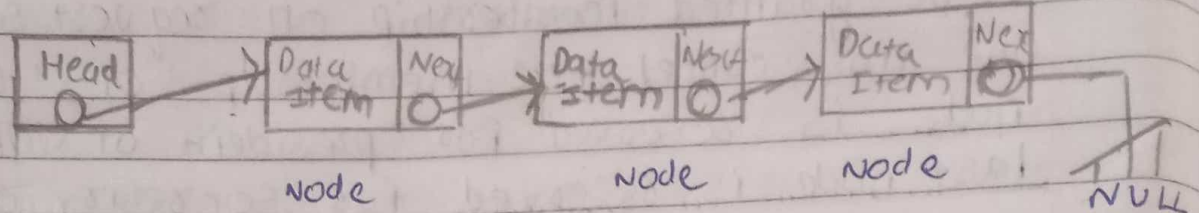 Head
Data Item
Nex
Data Item
Data Item
Nex
Node
Node
Node
NULL